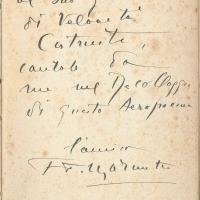 al suo
di Velocità
Costruite,
cantate da
me nel Decollaggio
di questo Aeropoema
l'amico
F. T. Marinetti